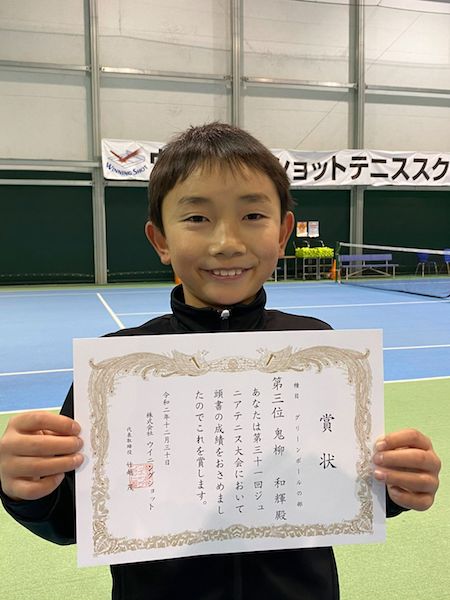 WINNING SHOT
ョットテニススク
賞状
種目 グリーンボールの部
第三位 鬼柳 和輝殿
あなたは第三十一回ジュ
ニアテニス大会において
頭書の成績をおさめまし
たのでこれを賞します。
令和二年十二月三十日
株式会社 ウイニングショット
代表取締役